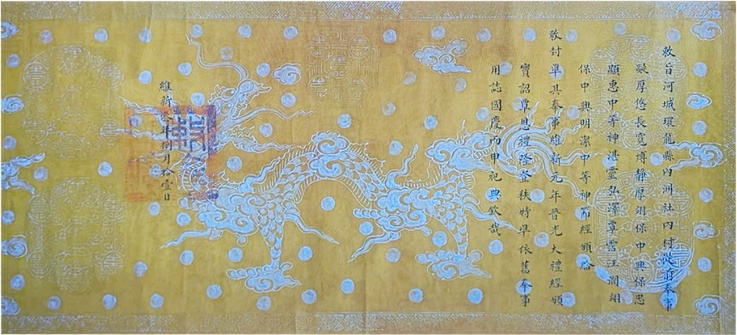 敕旨河城環龍縣內洲社內村從前奉事
凝厚悠長寬博靜厚翊保中興保忠
顯惠中等神湛靈弘澤覃汪潤翊
保中興明潔中等神節經頒給
敕封準其奉事維新元年晉光大禮經頒
寶詔覃恩禮隆登秩特準依舊奉事
用誌國慶而申祀典欽哉
維新叁年捌月拾壹日